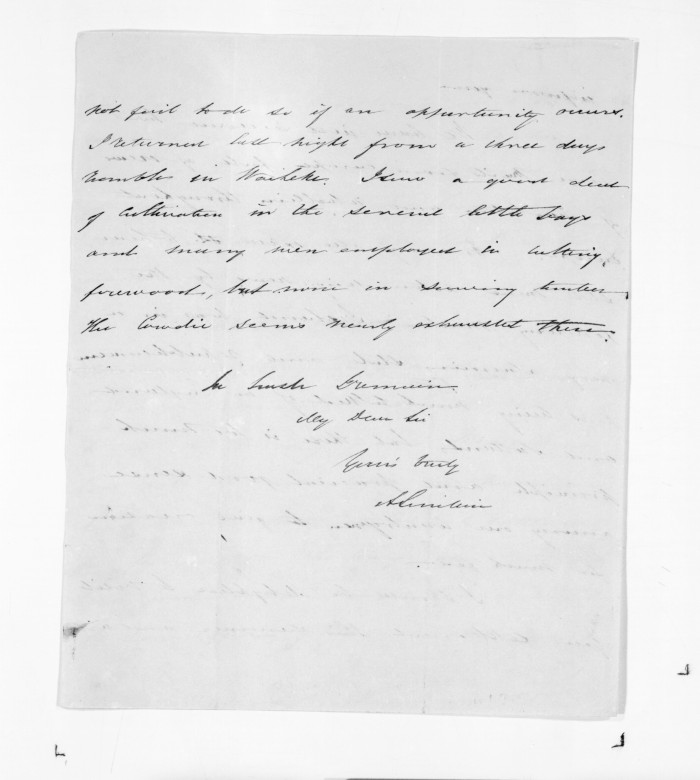 not fail to do so if an opportunity occurs.
I returned last night from a three days
ramble in Waiheke. I saw a good deal
of cultivation in the several little bays
and many men employed in cutting
firewood, but none in sawing timber
The Cowdie seems nearly exhausted there.
In haste I remain
My Dear Sir
Yours truly
A Sinclair